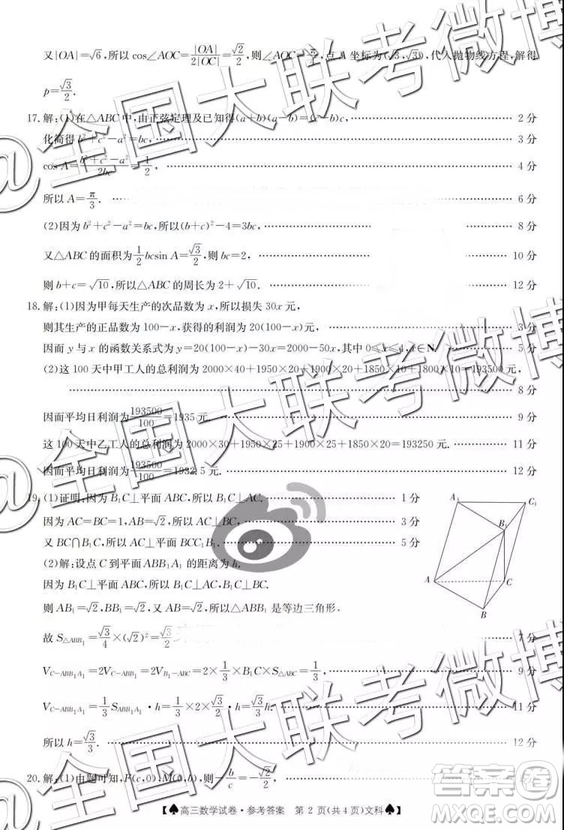 又|OA|=√6,所以cos∠AOC=|OA|/2|OC|=√2/2,则∠AOC=,点A坐标为(√3,√3),代入抛物线方程,解得
p=√3/2.
17.解:(1)在△ABC中,由正弦定理及已知得(a+b)(a-b)=(c-b)c, 2分
化简得b²+c²-a²=bc, 3分
cos A=b²+c²-a²/2bc=1/2, 4分
所以A=π/3. 6分
(2)因为b²+c²-a²=bc,所以(b+c)²-4=3bc, 8分
又△ABC的面积为1/2bcsin A=√3/2,则bc=2, 10分
则b+c=√10,所以△ABC的周长为2+√10. 12分
18.解:(1)因为甲每天生产的次品数为x,所以损失30x元,
则其生产的正品数为100-x,获得的利润为20(100-x)元, 3分
因而y与x的函数关系式为y=20(100-x)-30x=2000-50x,其中0≤x≤4,x∈N. 5分
(2)这100天中甲工人的总利润为2000×40+1950×20+1900×20+1850×10+1800×10=193500元,
8分
因而平均日利润为193500/100=1935元. 9分
这100天中乙工人的总利润为2000×30+1950×25+1900×25+1850×20=193250元, 11分
因而平均日利润为193250/100=1932.5元. 12分
19.(1)证明:因为B₁C⊥平面ABC,所以B₁C⊥AC. 1分
因为AC=BC=1,AB=√2,所以AC⊥BC. 3分
又BC∩B₁C,所以AC⊥平面BCC₁B₁. 5分
(2)解:设点C到平面ABB₁A₁的距离为h.
因为B₁C⊥平面ABC,所以B₁C⊥AC,B₁C⊥BC.
则AB₁=√2,BB₁=√2,所以△ABB₁是等边三角形.
故S△ABB₁=√3/4×(√2)²=√3/2. 7分
V C-ABB₁A₁=2V C-ABB₁=2V B₁-ABC=2×1/3×B₁C×S△ABC=1/3, 9分
V C-ABB₁A₁=1/3S ABB₁A₁·h=1/3×2×√3/2·h=1/3. 11分
所以h=√3/3. 12分
A₁
C₁
B₁
A
C
B
20.解:(1)由题可知,F(c,0),M(0,b),则-b/c=-√2/2, 2分
【♠高三数学试卷·参考答案 第2页(共4页)文科♠】
@全国大联考微博
@全国大联考微博
答案圈
MXQE.COM